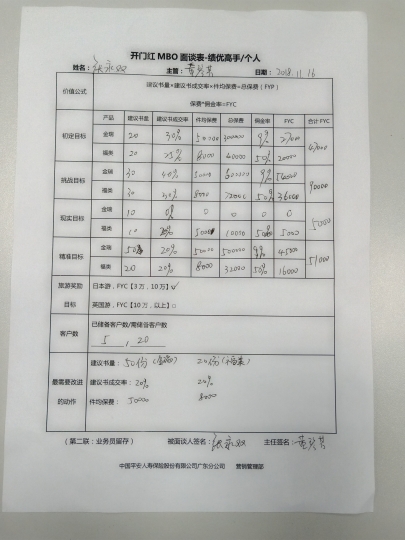 开门红 MBO 面谈表-绩优高手/个人
姓名： 主管： 日期：2018.11.16
价值公式 建议书量×建议书成交率×件均保费=总保费（FYP）
保费*佣金率=FYC
产品 建议书量 建议书成交率 件均保费 总保费 佣金率 FYC 合计 FYC
初定目标 金瑞 20 30% 50000 300000 9% 27000 47000
福类 20 25% 8000 40000 50% 20000
挑战目标 金瑞 30 40% 50000 600000 9% 54000 90000
福类 30 30% 8000 72000 50% 36000
现实目标 金瑞 10 0% 0 0 0 0 5000
福类 10 20% 5000 10000 50% 5000
精准目标 金瑞 50 20% 50000 500000 9% 45000 51000
福类 20 20% 8000 32000 50% 16000
旅游奖励 日本游，FYC【3 万，10 万】✓
目标 英国游，FYC【10 万，以上】○
客户数 已储备客户数/需储备客户数
5 , 20
建议书量：50份 20份
最需要改进 建议书成交率：20% 20%
的动作 件均保费：50000 8000
（第二联：业务员留存） 被面谈人签名： 主任签名：
中国平安人寿保险股份有限公司广东分公司 营销管理部